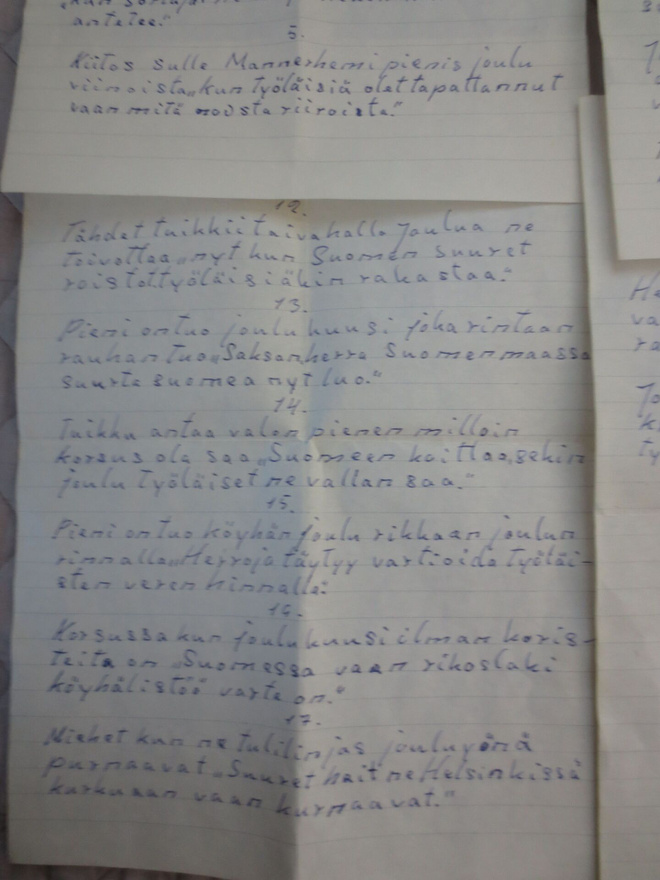 antelee."
5.
Kiitos sulle Mannerhemi pienis joulu
viinoista „kun työläisiä olet tapattannut
vaan mitä noista riiroista."
12.
Tähdet tuikkii taivahalla Joulua ne
toivottaa „nyt kun Suomen suuret
roistot työläisiäkin rakastaa."
13.
Pieni on tuo joulukuusi joka rintaan
rauhan tuo „Saksan herra Suomenmaassa
suurta suomea nyt luo."
14.
Tuikku antaa valon pienen milloin
korsus olla saa „Suomeen koittaa, sekin
joulu Työläiset ne vallan saa."
15.
Pieni on tuo köyhän Joulu rikkaan joulun
rinnalla „Herroja täytyy vartioida Työläi-
sten veren hinnalla."
16.
Korsussa kun joulukuusi ilman koris-
teita on „Suomessa vaan rikoslaki
köyhälistöö varte on."
17.
Miehet kun ne tulilinjas jouluyönä
purnaavat „Suuret hait ne Helsinkissä
kurkuaan vaan kurnaavat."